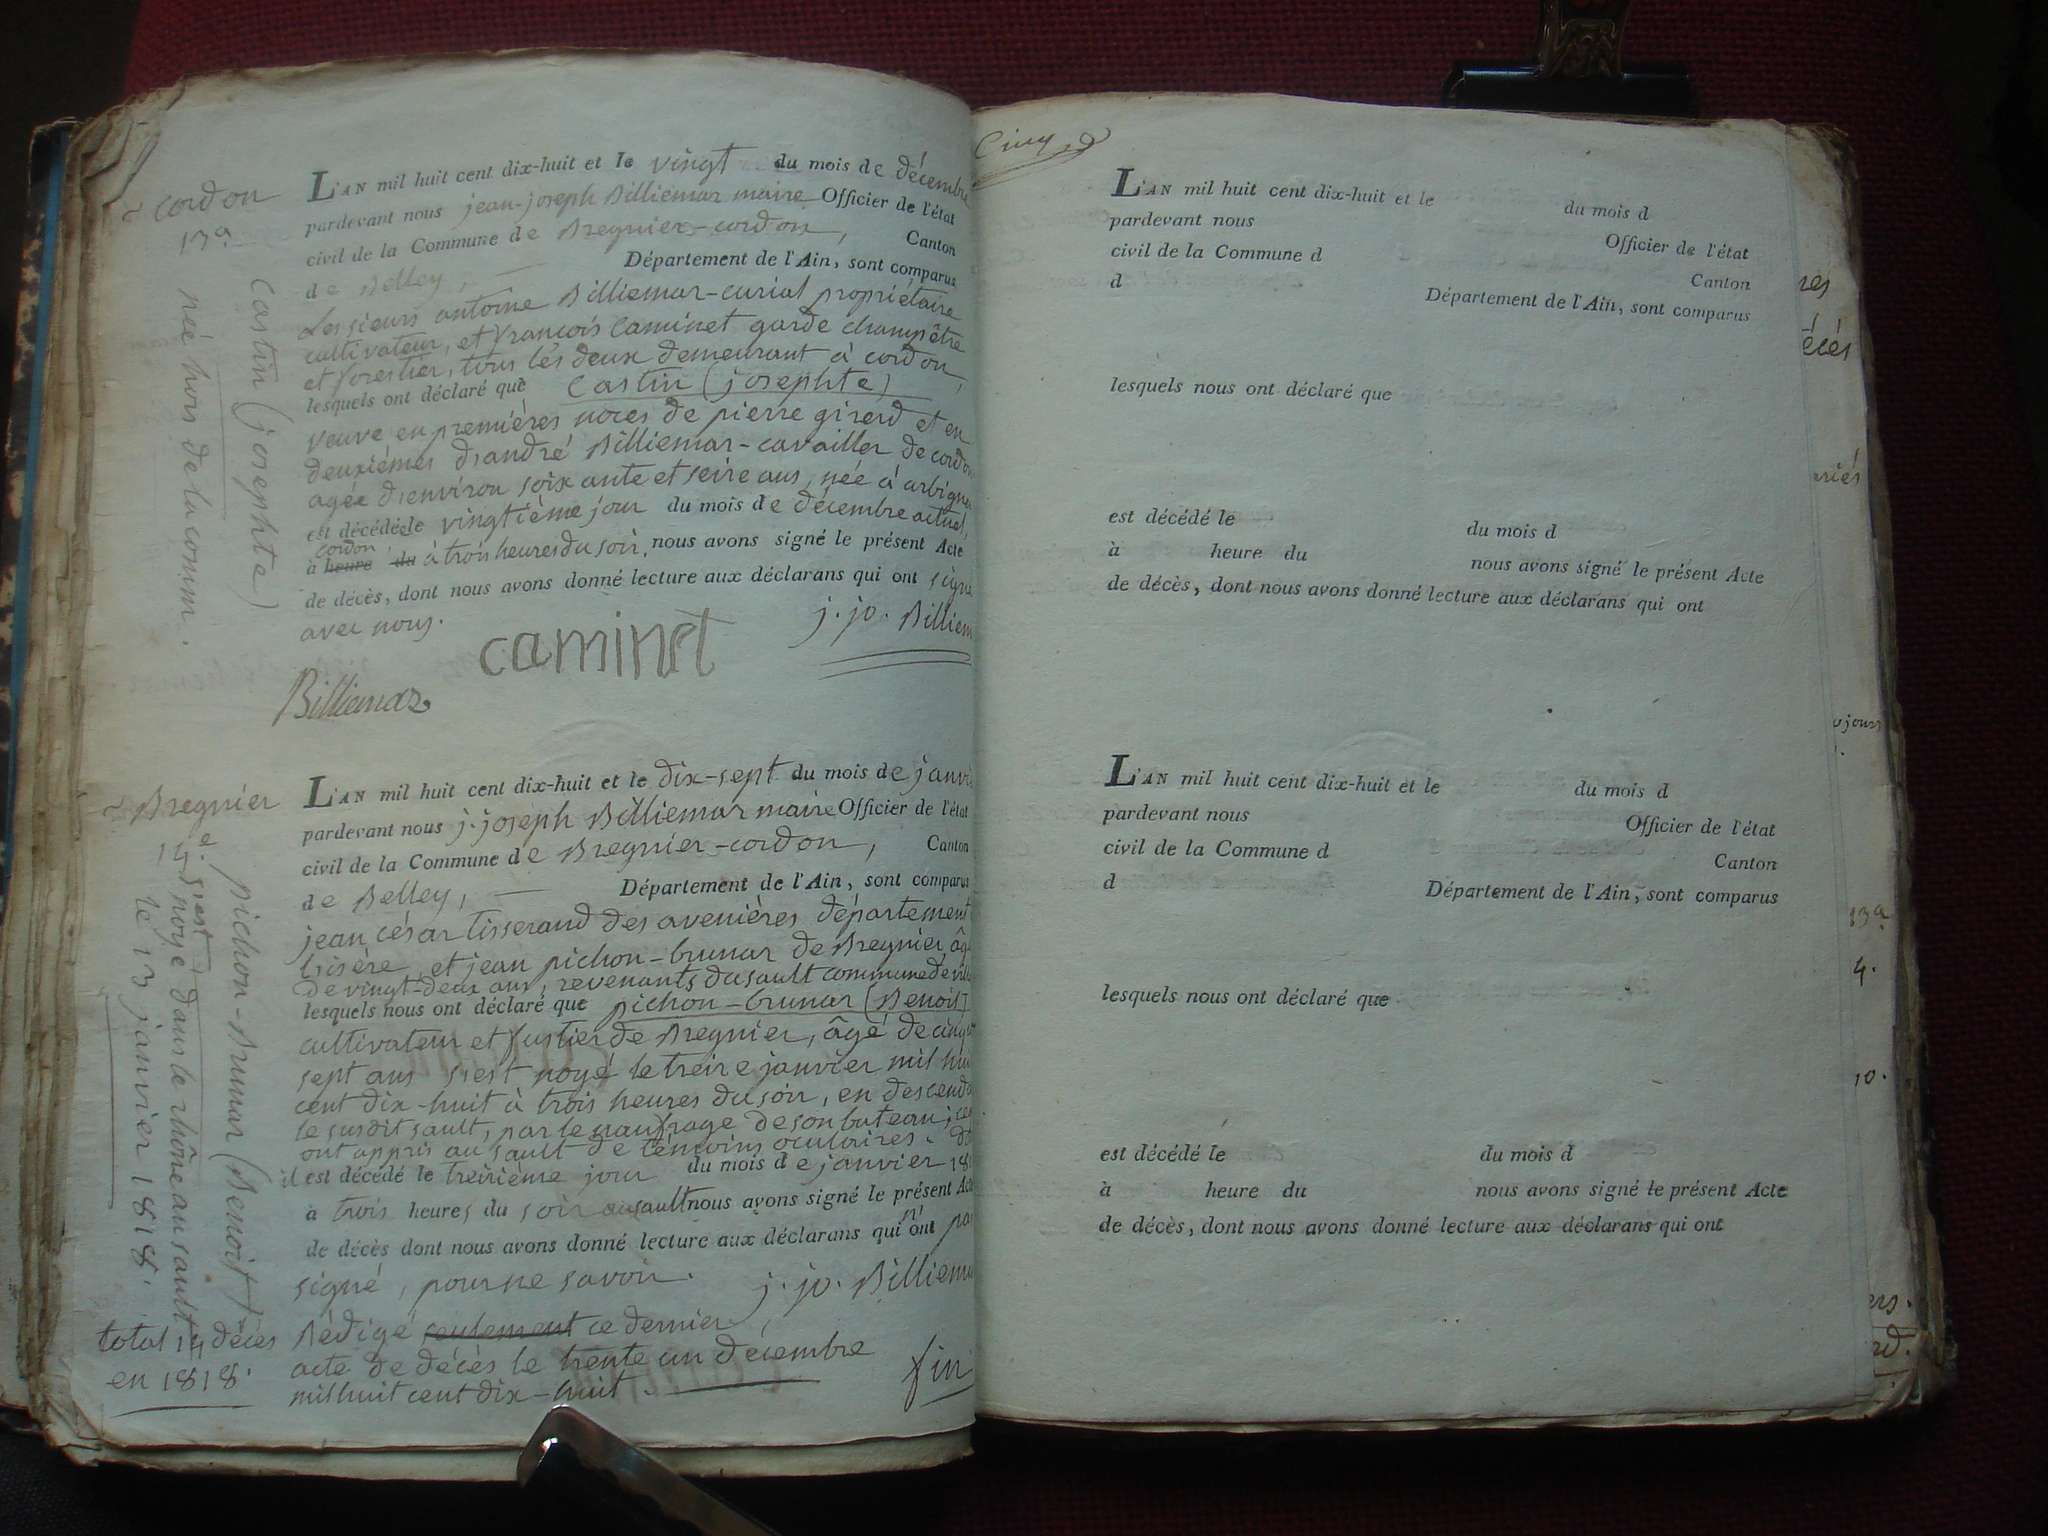 cordon
13e
castin (josephte)
née hors de la comm.
L'AN mil huit cent dix-huit et le vingt du mois de décembre
pardevant nous jean-joseph Billiemaz maire Officier de l'état
civil de la Commune de Bregnier-cordon, Canton
de Belley, Département de l'Ain, sont comparus
Les sieurs antoine Billiemaz-curial propriétaire
cultivateur, et françois Caminet garde champêtre
et forestier, tous les deux demeurant à cordon,
lesquels ont déclaré que castin (josephte)
veuve en premières noces de pierre girerd et en
deuxièmes d'andré Billiemaz-cavailler de cordon
agée d'environ soixante et seize ans, née à arbignieu
est décédée le vingtième jour du mois de décembre actuel,
cordon
à heure du à trois heures du soir, nous avons signé le présent Acte
de décès, dont nous avons donné lecture aux déclarans qui ont signé
avec nous.
caminet
j. jo. Billiem
Billiemaz
Bregnier
14e.
pichon-brunaz (Benoit)
s'est noyé dans le rhône au sault
le 13 janvier 1818.
L'AN mil huit cent dix-huit et le dix-sept du mois de janvi
pardevant nous j. joseph Billiemaz maire Officier de l'état
civil de la Commune de Bregnier-cordon, Canton
de Belley, Département de l'Ain, sont comparus
jean césar tisserand des avenières département
l'isère, et jean pichon-brunaz de Bregnier, âg
de vingt-deux ans, revenants du sault commune de vil
lesquels nous ont déclaré que pichon-brunaz (Benoit)
cultivateur et fustier de Bregnier, âgé de cinq
sept ans s'est noyé le treize janvier mil hui
cent dix-huit à trois heures du soir, en descenda
le susdit sault, par le naufrage de son bateau; ce
ont appris au sault de témoins oculaires.
il est décédé le treizième jour du mois de janvier 18
à trois heures du soir au sault nous avons signé le présent Acte
de décès dont nous avons donné lecture aux déclarans qui n'ont pa
signé, pour ne savoir. j. jo. Billiema
total 14 décès
en 1818.
Rédigé seulement ce dernier
acte de décès le trente un décembre
mil huit cent dix-huit.
fin
Cinq
L'AN mil huit cent dix-huit et le du mois d
pardevant nous Officier de l'état
civil de la Commune d Canton
d Département de l'Ain, sont comparus
lesquels nous ont déclaré que
est décédé le du mois d
à heure du nous avons signé le présent Acte
de décès, dont nous avons donné lecture aux déclarans qui ont
L'AN mil huit cent dix-huit et le du mois d
pardevant nous Officier de l'état
civil de la Commune d Canton
d Département de l'Ain, sont comparus
lesquels nous ont déclaré que
est décédé le du mois d
à heure du nous avons signé le présent Acte
de décès, dont nous avons donné lecture aux déclarans qui ont
écés
jours
13e
4.
10.